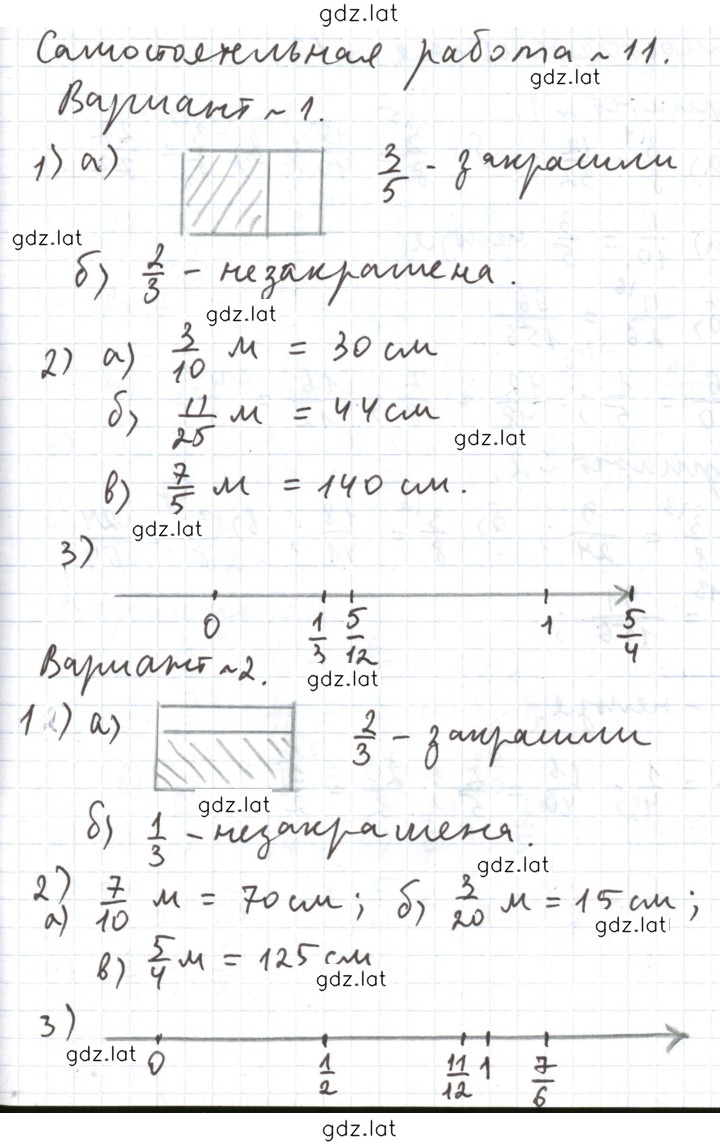 gdz.lat
Самостоятельная работа №11.
gdz.lat
Вариант №1.
1) а) 3/5 - закрашли
gdz.lat
б) 2/3 - незакрашена.
gdz.lat
2) а) 3/10 м = 30 см
б) 11/25 м = 44 см
gdz.lat
в) 7/5 м = 140 см.
gdz.lat
3)
0 1/3 5/12 1 5/4
Вариант №2.
gdz.lat
1) а) 2/3 - закрашли
gdz.lat
б) 1/3 - незакрашена.
gdz.lat
2) а) 7/10 м = 70 см; б) 3/20 м = 15 см;
gdz.lat
в) 5/4 м = 125 см
gdz.lat
3)
gdz.lat
0 1/2 11/12 1 7/6
gdz.lat